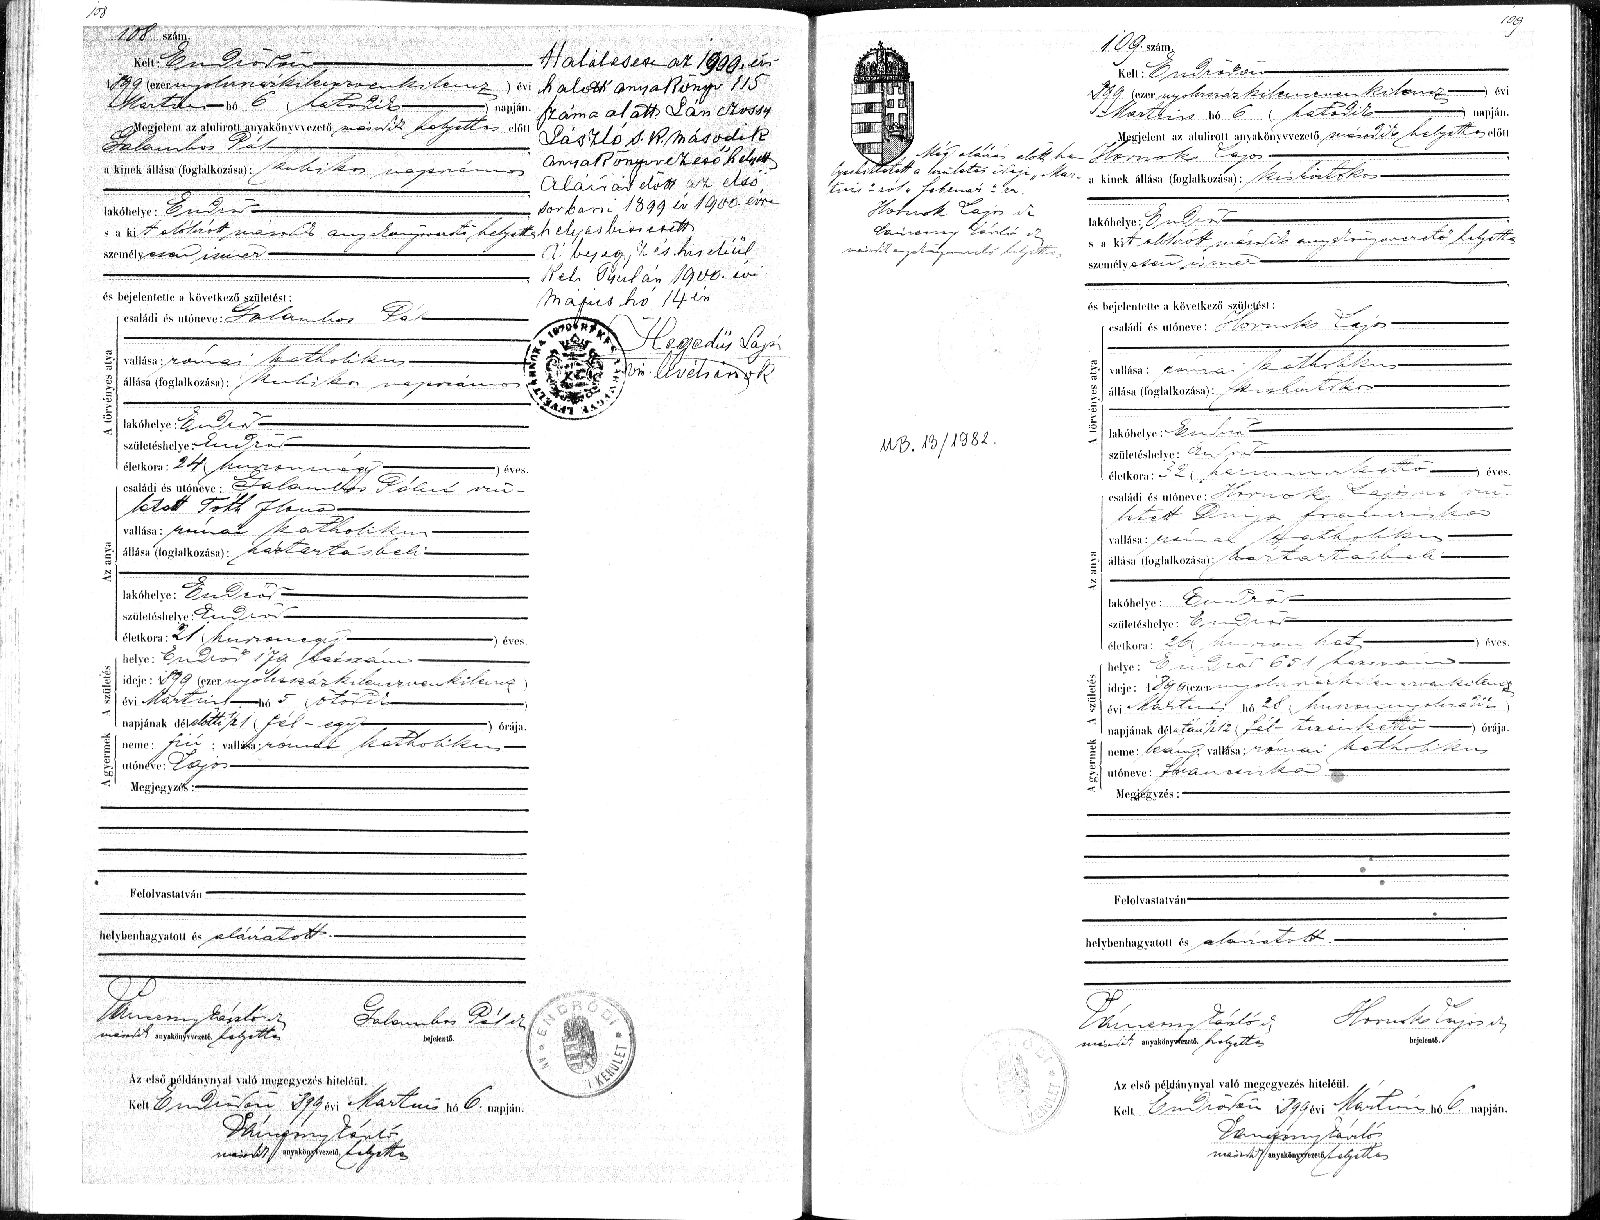 108
108. szám.
Kelt: Endrődön
1899 (ezernyolczszázkilenczvenkilencz) évi
Martius hó 6 (hatodik) napján.
Megjelent az alulirott anyakönyvvezető második helyettes előtt
Galambos Pál
a kinek állása (foglalkozása): kubikos napszámos
lakóhelye: Endrőd
s a kit alólirott második anyakönyvvezető helyettes
személyesen ismer
és bejelentette a következő születést:
A törvényes atya
családi és utóneve: Galambos Pál
vallása: római katholikus
állása (foglalkozása): kubikos napszámos
lakóhelye: Endrőd
születéshelye: Endrőd
életkora: 24 (huszonnégy) éves.
Az anya
családi és utóneve: Galambos Pálné szü-
letett Tóth Ilona
vallása: római katholikus
állása (foglalkozása): háztartásbeli
lakóhelye: Endrőd
születéshelye: Endrőd
életkora: 21 (huszonegy) éves.
A születés
helye: Endrőd 179 házszám
ideje: 1899 (ezernyolczszázkilenczvenkilencz)
évi Martius hó 5 (ötödik)
napjának délelőtti ½1 (fél-egy) órája.
A gyermek
neme: fiú; vallása: római katholikus
utóneve: Lajos
Megjegyzés:
Felolvastatván
helybenhagyatott és aláiratott.
második anyakönyvvezető helyettes
Galambos Pál sk
bejelentő.
Az első példánynyal való megegyezés hiteléül.
Kelt Endrődön 1899 évi Martius hó 6. napján.
második anyakönyvvezető helyettes
Halálesete az 1900. évi
halott anyakönyv 115
száma alatt.
László s.k. második
anyakönyvvezető helyett
Aláirás előtt az első
sorban 1899 év 1900. évre
helyesbíttetett
A bejegyzés hiteléül
Kelt Gyulán 1900. évi
Május hó 14 én
Hegedűs Lajos
vm. levéltárnok
BÉKÉS VÁRMEGYE LEVÉLTÁRNOKA 1870
ENDRŐDI AN KERÜLET
109
109. szám.
Kelt: Endrődön
1899 (ezernyolczszázkilenczvenkilencz) évi
Martius hó 6 (hatodik) napján.
Megjelent az alulirott anyakönyvvezető második helyettes előtt
Hornok Lajos
a kinek állása (foglalkozása): kisbirtokos
lakóhelye: Endrőd
s a kit alólirott második anyakönyvvezető helyettes
személyesen ismer
és bejelentette a következő születést:
A törvényes atya
családi és utóneve: Hornok Lajos
vallása: római katholikus
állása (foglalkozása): kisbirtokos
lakóhelye: Endrőd
születéshelye: Endrőd
életkora: 32 (harminczkettő) éves.
Az anya
családi és utóneve: Hornok Lajosné szü-
letett Dinya Francziska
vallása: római katholikus
állása (foglalkozása): háztartásbeli
lakóhelye: Endrőd
születéshelye: Endrőd
életkora: 26 (huszonhat) éves.
A születés
helye: Endrőd 651 házszám
ideje: 1899 (ezernyolczszázkilenczvenkilencz)
évi Martius hó 28 (huszonnyolczadik)
napjának délutáni ½12 (fél-tizenkettő) órája.
A gyermek
neme: leány; vallása: római katholikus
utóneve: Francziska
Megjegyzés:
Felolvastatván
helybenhagyatott és aláiratott.
második anyakönyvvezető helyettes
Hornok Lajos sk
bejelentő.
Az első példánynyal való megegyezés hiteléül.
Kelt Endrődön 1899 évi Martius hó 6. napján.
második anyakönyvvezető helyettes
Még aláirás előtt he-
lyesbíttetett a születés ideje, „Mar-
tius"-ról „februar"-ra.
Hornok Lajos sk
második anyakönyvvezető helyettes
MB. 13/1982.